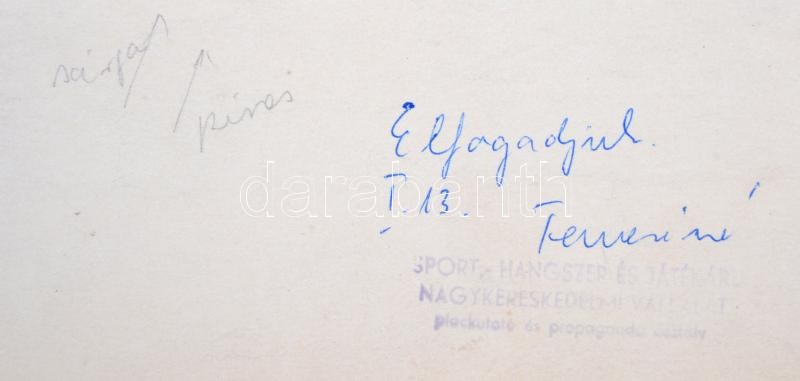 sárga
piros
Elfogadjuk.
I. 13.
darabanth
SPORT-, HANGSZER ÉS JÁTÉKÁRU
NAGYKERESKEDELMI VÁLLALAT
piackutató és propaganda osztály